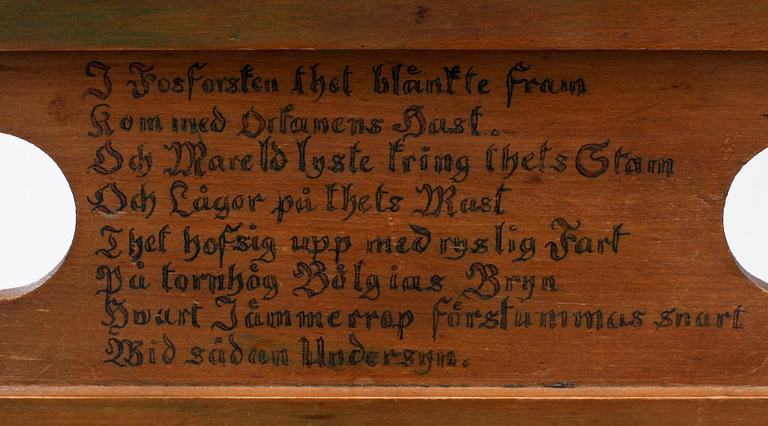 I Fosforsken thet blånkte fram
Kom med Orkanens Hast.
Och Mareld lyste kring thets Stam
Och Lågor på thets Mast
Thet hofsig upp med ryslig Fart
På tornhög Bölgias Bryn
Hwart Jämmerrop förstummas snart
Wid sådan Undersyn.